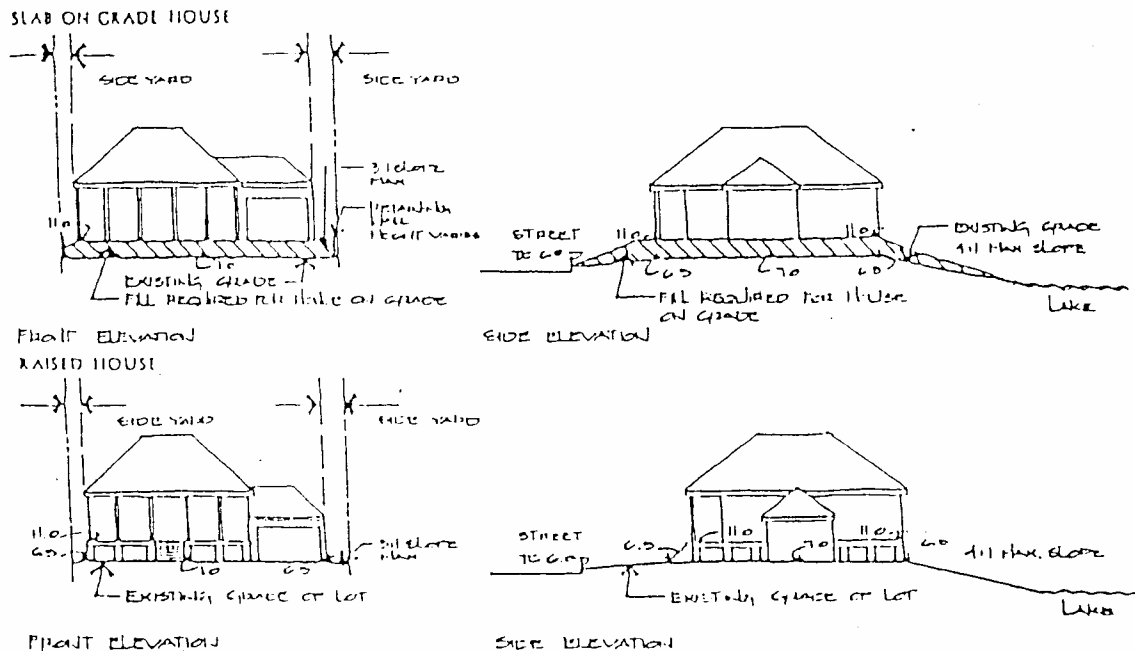 SLAB ON GRADE HOUSE
SIDE YARD
SIDE YARD
3:1 SLOPE
MAX
RETAINING
WALL
HEIGHT VARIES
11.0
7.0
EXISTING GRADE
FILL REQUIRED FOR HOUSE ON GRADE
FRONT ELEVATION
STREET
TC 6.0
11.0
11.0
EXISTING GRADE
4:1 MAX SLOPE
6.5
7.0
6.0
FILL REQUIRED FOR HOUSE
ON GRADE
LAKE
SIDE ELEVATION
RAISED HOUSE
SIDE YARD
SIDE YARD
11.0
6.5
7.0
6.5
3:1 SLOPE
MAX
EXISTING GRADE OF LOT
FRONT ELEVATION
STREET
TC 6.0
6.5
11.0
7.0
11.0
6.0
4:1 MAX. SLOPE
EXISTING GRADE OF LOT
LAKE
SIDE ELEVATION